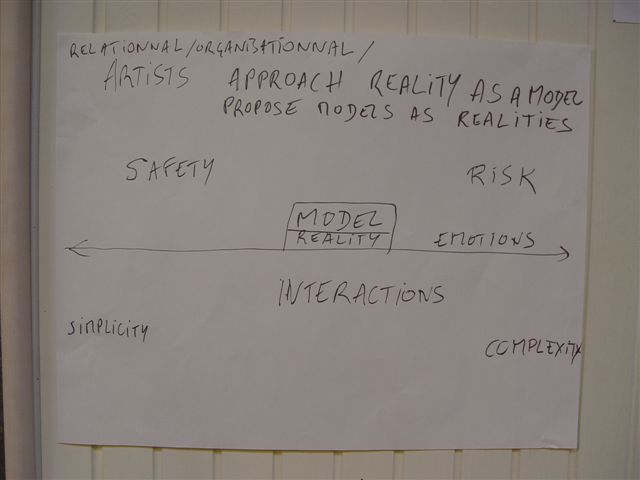 RELATIONNAL/ORGANISATIONNAL/
ARTISTS APPROACH REALITY AS A MODEL
PROPOSE MODELS AS REALITIES
SAFETY RISK
MODEL
REALITY EMOTIONS
INTERACTIONS
SIMPLICITY
COMPLEXITY